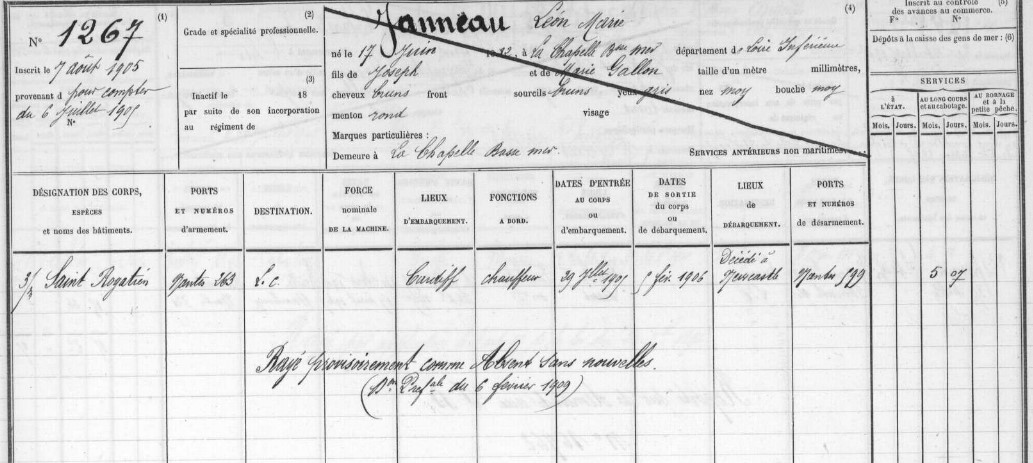 N° 1267 (1)
Inscrit le 7 août 1905
provenant d pour compter
du 6 Juillet 1905
N°
(2)
Grade et spécialité professionnelle.
(3)
Inactif le 18
par suite de son incorporation
au régiment de
Janneau Léon Marie (4)
né le 17 Juin à La Chapelle Bse mer département d Loire Inférieure
fils de Joseph et de Marie Gallon taille d'un mètre millimètres,
cheveux bruns front sourcils bruns yeux gris nez moy bouche moy
menton rond visage
Marques particulières :
Demeure à La Chapelle Basse mer SERVICES ANTÉRIEURS non maritimes
Inscrit au contrôle (5)
des avances au commerce.
F° N°
Dépôts à la caisse des gens de mer : (6)
SERVICES
à L'ÉTAT. AU LONG-COURS et au cabotage. AU BORNAGE et à la petite pêche.
Mois. Jours. Mois. Jours. Mois. Jours.
DÉSIGNATION DES CORPS, ESPÈCES et noms des bâtiments.
PORTS ET NUMÉROS d'armement.
DESTINATION.
FORCE nominale DE LA MACHINE.
LIEUX D'EMBARQUEMENT.
FONCTIONS A BORD.
DATES D'ENTRÉE AU CORPS ou d'embarquement.
DATES DE SORTIE du corps ou de débarquement.
LIEUX de DÉBARQUEMENT.
PORTS ET NUMÉROS de désarmement.
3/m Saint Rogatien Nantes 263 L. C. Cardiff chauffeur 29 Jllet 1905 5 fév. 1906 Décédé à Newcastle Nantes 599 5 07
Rayé provisoirement comme Absent sans nouvelles.
(Don Présale du 6 février 1909)